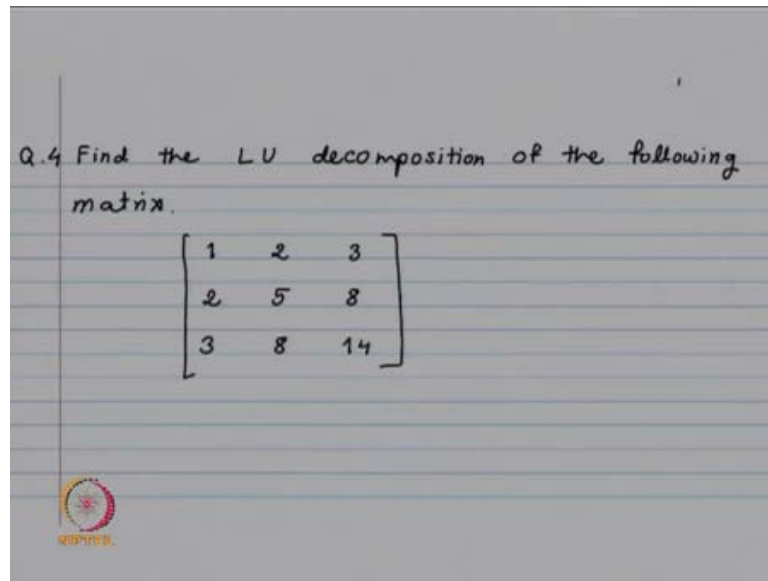 Q.4 Find the LU decomposition of the following
matrix.
1 2 3
2 5 8
3 8 14